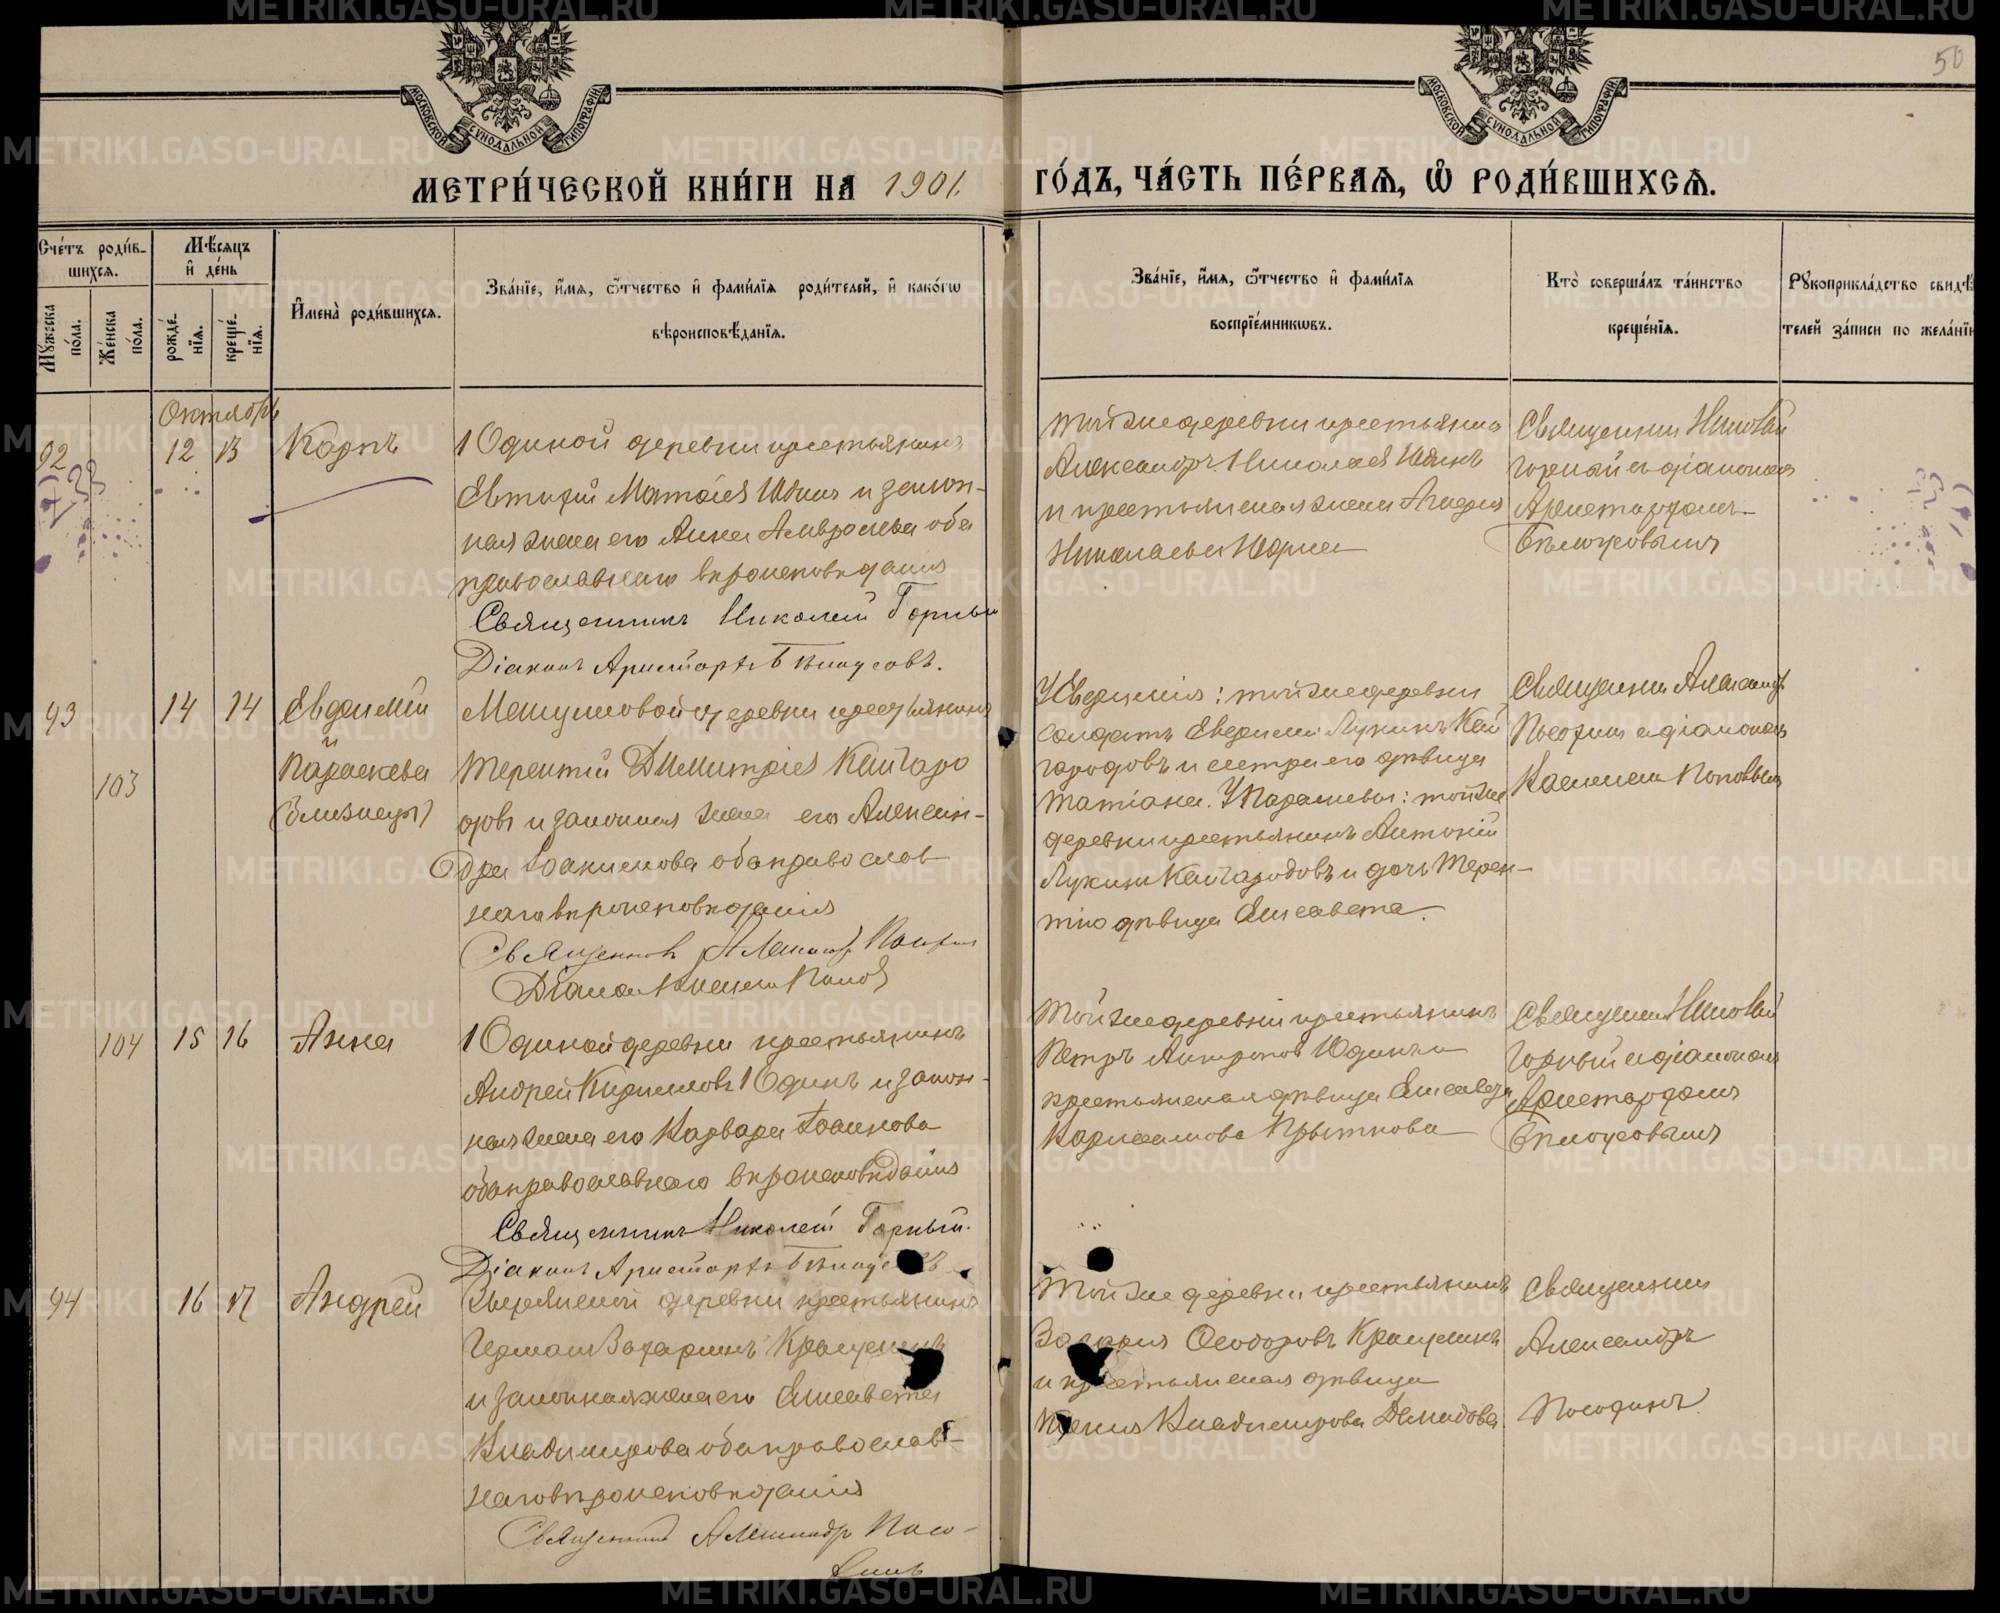 50
МОСКОВСКОЙ СУНОДАЛЬНОЙ ТИПОГРАФІИ
МОСКОВСКОЙ СУНОДАЛЬНОЙ ТИПОГРАФІИ
МЕТРИ́ЧЕСКОЙ КНИ́ГИ НА 1901.
ГО́ДЪ, ЧА́СТЬ ПЕ́РВАѦ, Ѡ҆ РОДИ́ВШИХСѦ.
Сче́тъ роди́в-
шихсѧ.
Мꙋ́жеска по́ла.
Же́нска по́ла.
Мѣ́сѧцъ
и҆ де́нь
рожде́-
нїѧ.
креще́-
нїѧ.
И҆мена̀ роди́вшихсѧ.
Зва́нїе, и҆́мѧ, ѻ҆́тчество и҆ фами́лїѧ роди́телей, и҆ како́гѡ
вѣроисповѣ́данїѧ.
Зва́нїе, и҆́мѧ, ѻ҆́тчество и҆ фами́лїѧ
воспрїе́мникѡвъ.
Кто̀ соверша́лъ та́инство
креще́нїѧ.
Рꙋкоприкла́дство свидѣ́
телей за́писи по жела́нїю
Октябрь
92
12
13
Карпъ
Юдиной деревни крестьянинъ
Евтихій Матѳіевъ Юдинъ и закон-
ная жена его Анна Амвросіева оба
православнаго вѣроисповѣданія
Священникъ Николай Горный
Діаконъ Аристархъ Бѣлоусовъ.
той же деревни крестьянинъ
Александръ Николаевъ Юдинъ
и крестьянская жена
Николаева Юдина
Священникъ Николай
Горный съ діакономъ
Аристархомъ
Бѣлоусовымъ
93
103
14
14
Евдокимъ
и
Параскева
(близнецы)
деревни крестьянинъ
Терентій Димитріевъ Кайгоро
довъ и законная жена его Алексан-
дра Іоакимова оба православ
наго вѣроисповѣданія
Священникъ Александръ
Діаконъ Поповъ
У Евдокима: той же деревни
солдатъ Евдокимъ Лукинъ Кай
городовъ и сестра его дѣвица
Татіана. У Параскевы: той же
деревни крестьянинъ Антоній
Лукинъ Кайгородовъ и дочь Терен-
тія дѣвица Елисавета.
Священникъ Александръ
съ діакономъ
Поповымъ
104
15
16
Анна
Юдиной деревни крестьянинъ
Андрей Кирилловъ Юдинъ и закон-
ная жена его Варвара Іоаннова
оба православнаго вѣроисповѣданія
Священникъ Николай Горный.
Діаконъ Аристархъ Бѣлоусовъ
Той же деревни крестьянинъ
Петръ Юдинъ и
крестьянская дѣвица Елисавета
Священникъ Николай
Горный съ діакономъ
Аристархомъ
Бѣлоусовымъ
94
16
17
Андрей
деревни крестьянинъ
Германъ Захаринъ
и законная жена его Елисавета
Владимирова оба православ-
наго вѣроисповѣданія
Священникъ Александръ
Той же деревни крестьянинъ
Захарія Ѳеодоровъ
и крестьянская дѣвица
Владимирова Демидова
Священникъ
Александръ